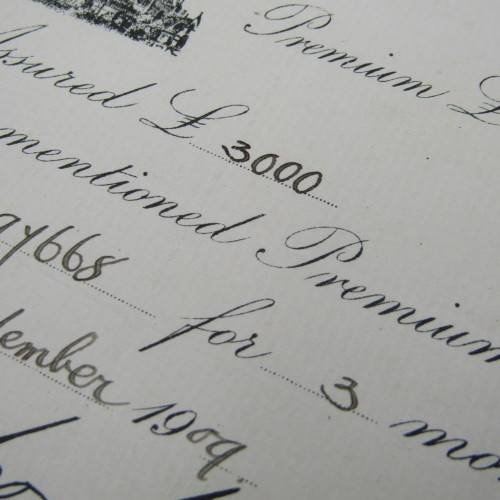 Premium £
Assured £ 3000
mentioned Premium
668 for 3 mo
tember 1909